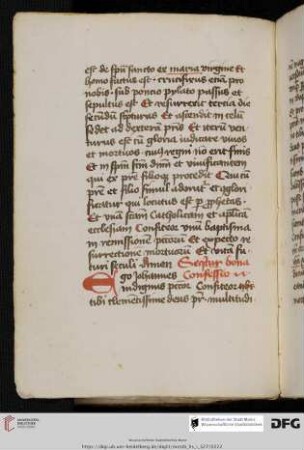 est de spū sancto ex maria virgine Et
homo factus est · crucifixus eciā pro
nobis · sub poncio pylato passus et
sepultus est Et resurrexit tercia die
secūdū scpturas Et ascendit in celū
sedet ad dexterā pris Et iterū ven
turus est cū gloria iudicare viuos
et mortuos cuiꝰ regni nō erit finis
Et in spm scm dnm et viuificantem
qui ex pre filioqȝ procedit Qui cū
pre et filio simul adorat et cglori
ficatur qui locutus est p pphetas
Et vnā scam catholicam et aplicā
ecclesiam Confiteor vnū baptisma
in remissionem pctorū Et expecto re
surrectione mortuorū Et vitā fu
turi seculi Amen Seqtur bona
Ego Johannes Confessio
indignus pctor Confiteor
tibi clementissime deus pr multitudi
Bibliothek der Stadt Mainz